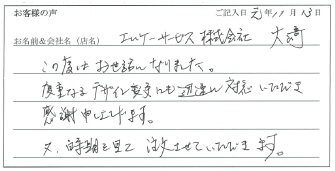 お客様の声
ご記入日 元年11月13日
お名前&会社名(店名) エムケーサービス株式会社 大﨑
この度はお世話になりました。
度重なるデザイン変更にも迅速に対応いただき
感謝申し上げます。
又、時期を見て注文させていただきます。